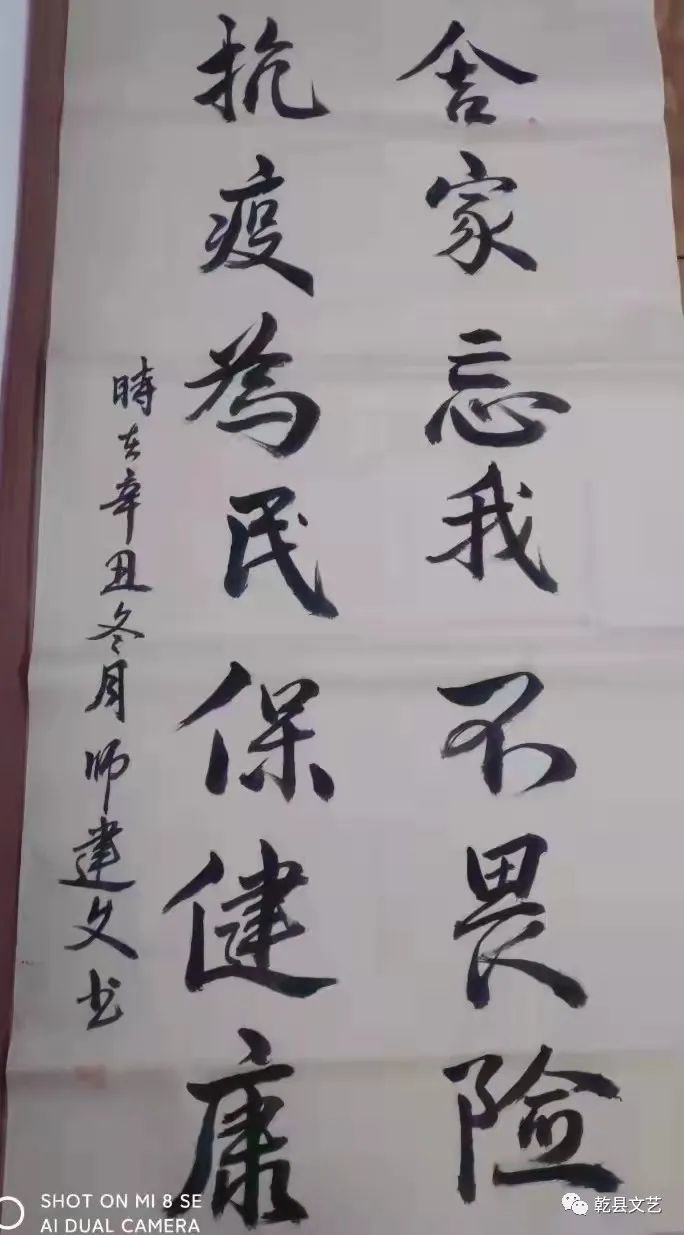 舍家忘我不畏险
抗疫為民保健康
時在辛丑冬月师建文书
SHOT ON MI 8 SE
AI DUAL CAMERA
乾县文艺